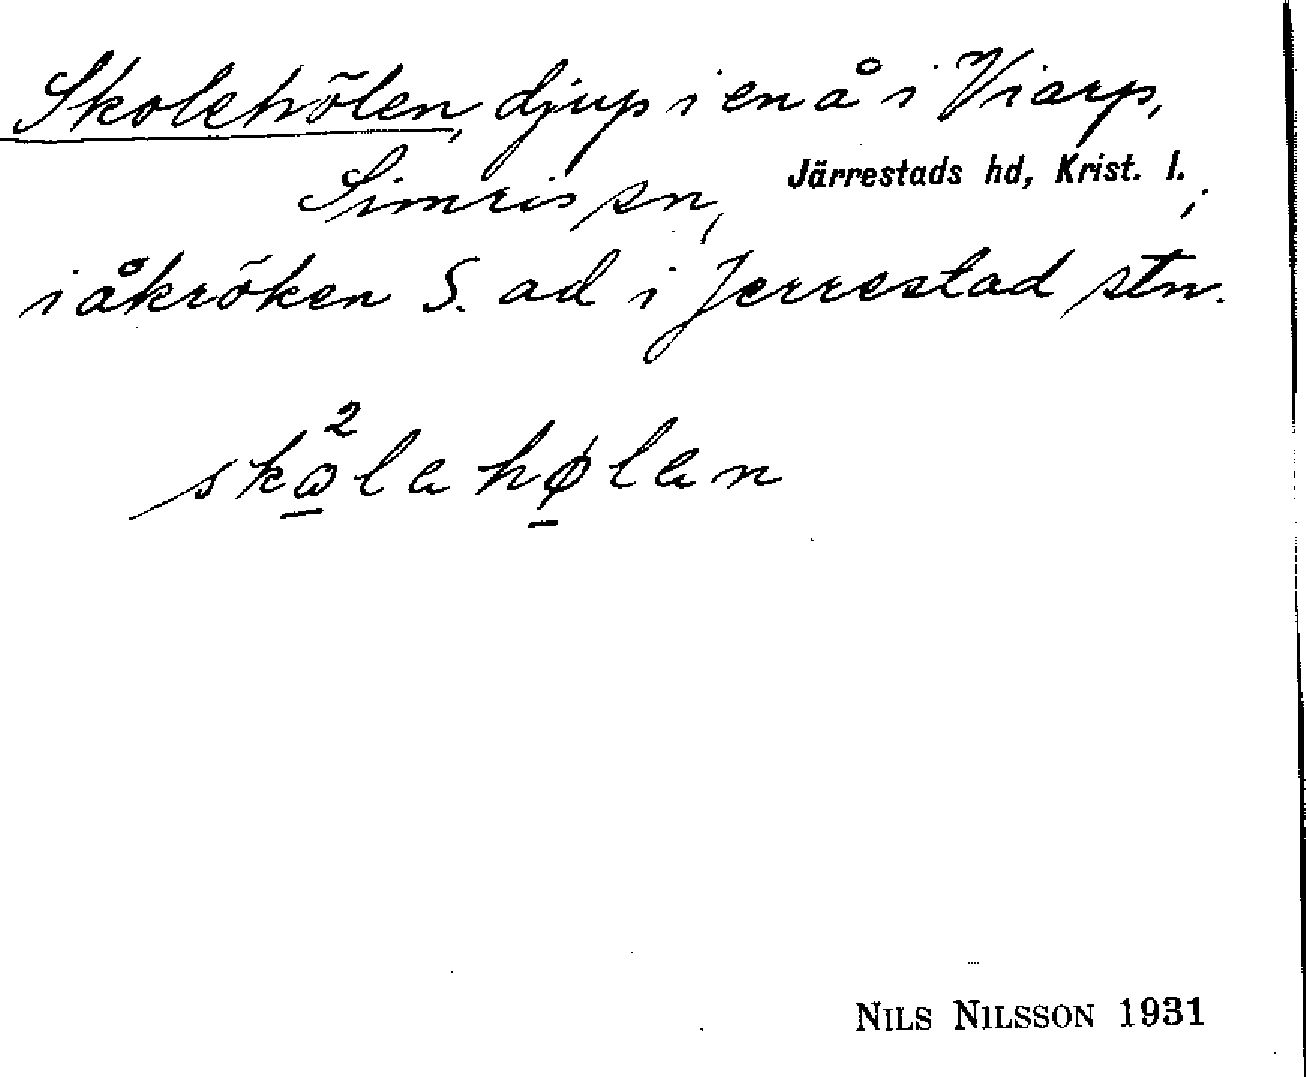 Skolehölen, djup i en å i Viarp,
Simris sn, Järrestads hd, Krist. l. ;
i åkröken S. ad i Jerrestad stn.
skω̱²lahø̱lan
NILS NILSSON 1931